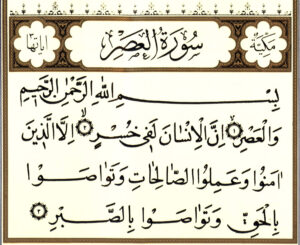 مكية سورة العصر آياتها ٣
بسم الله الرحمن الرحيم
والعصر ١ إن الإنسان لفي خسر ٢ إلا الذين
آمنوا وعملوا الصالحات وتواصوا
بالحق وتواصوا بالصبر ٣